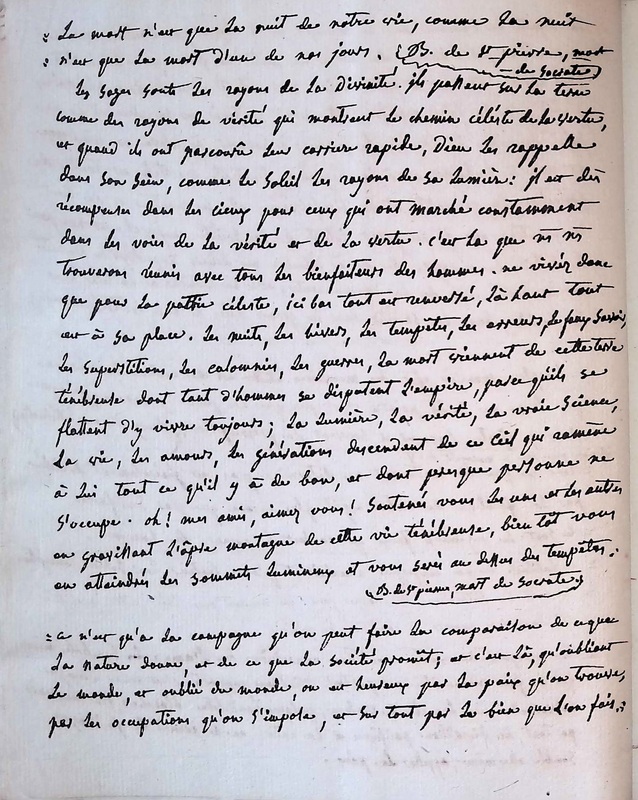 : La mort n'est que la nuit de notre vie, comme la nuit
: n'est que la mort d'un de nos jours. (B. de St pierre, mort
de Socrate)
les sages sont les rayons de la Divinité. ils passent sur la terre
comme des rayons de vérité qui montrent le chemin céléste de la vertu,
et quand ils ont parcouru leur carriere rapide, Dieu les rappelle
dans son sein, comme le Soleil les rayons de sa lumière: il est des
récompenses dans les cieux pour ceux qui ont marché constamment
dans les voies de la vérité et de la vertu. c'est là que ns ns
trouverons réunis avec tous les bienfaiteurs des hommes. ne vivéz donc
que pour la patrie céleste, ici bas tout est renversé, là haut tout
est à sa place. les nuits, les hivers, les tempêtes, les erreurs, le faux savoir,
les superstitions, les calomnies, les guerres, la mort viennent de cette terre
ténébreuse dont tant d'hommes se disputent l'empire, parce qu'ils se
flattent d'y vivre toujours; la lumière, la vérité, la vraie Science,
la vie, les amours, les générations descendent de ce Ciel qui ramène
à lui tout ce qu'il y à de bon, et dont presque personne ne
s'occupe. oh! mes amis, aimez vous! Soutenés vous les uns et les autres
en gravissant l'âpre montagne de cette vie ténébreuse, bien tôt vous
en atteindrés les sommets lumineux et vous serés au dessus des tempêtes.:
(B. de St pierre, mort de Socrate)
:= ce n'est qu'a la campagne qu'on peut faire la comparaison de ce que
la nature donne, et de ce que la Société promêt; et c'est là, qu'oubliant
le monde, et oublié du monde, on est heureux par la paix qu'on trouve,
par les occupations qu'on s'impose, et sur tout par le bien que l'on fais.: